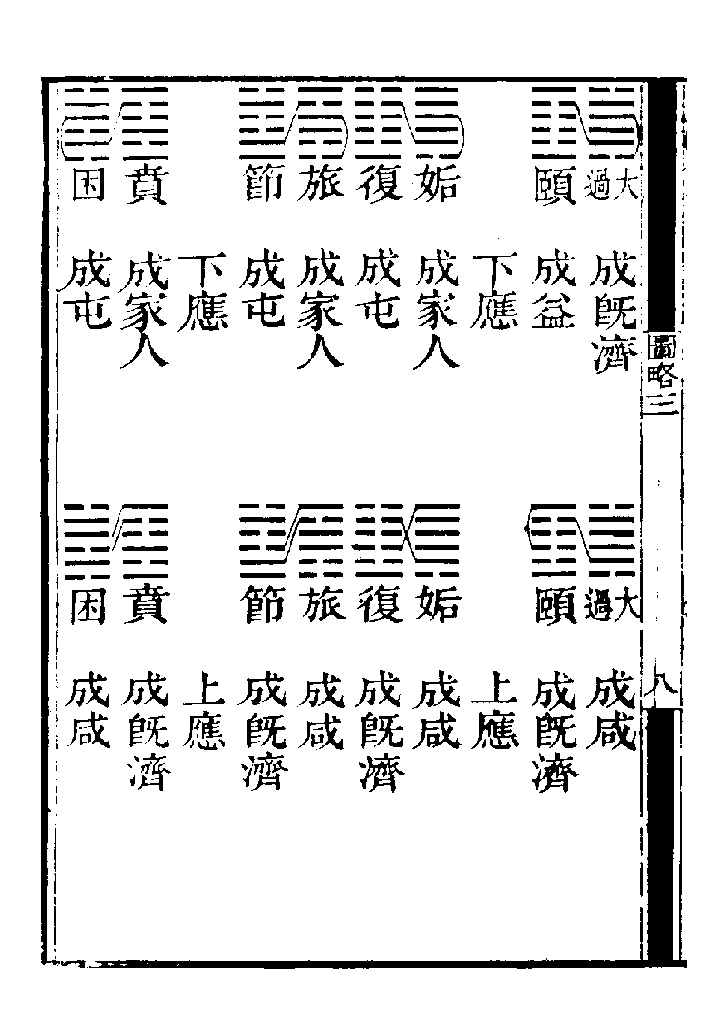 圖略三
八
大過 成旣濟
頤 成益
下應
姤 成家人
復 成屯
旅 成家人
節 成屯
下應
賁 成家人
困 成屯
大過 成咸
頤 成旣濟
上應
姤 成咸
復 成旣濟
旅 成咸
節 成旣濟
上應
賁 成旣濟
困 成咸